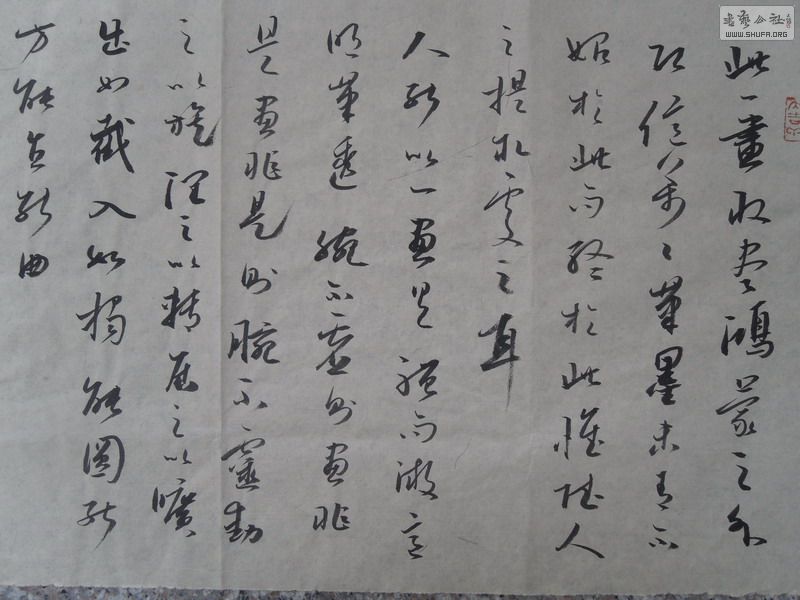 此一畫收盡鴻蒙之外
即億萬萬筆墨未有不
始於此而終於此惟聽人
之之耳
人能以一畫具體而微意
明筆透腕不虛則畫非
是畫非是則腕不靈動
之以旋潤之以轉居之以曠
出如截入如揭能圓能
方能直能曲
書藝公社
WWW.SHUFA.ORG